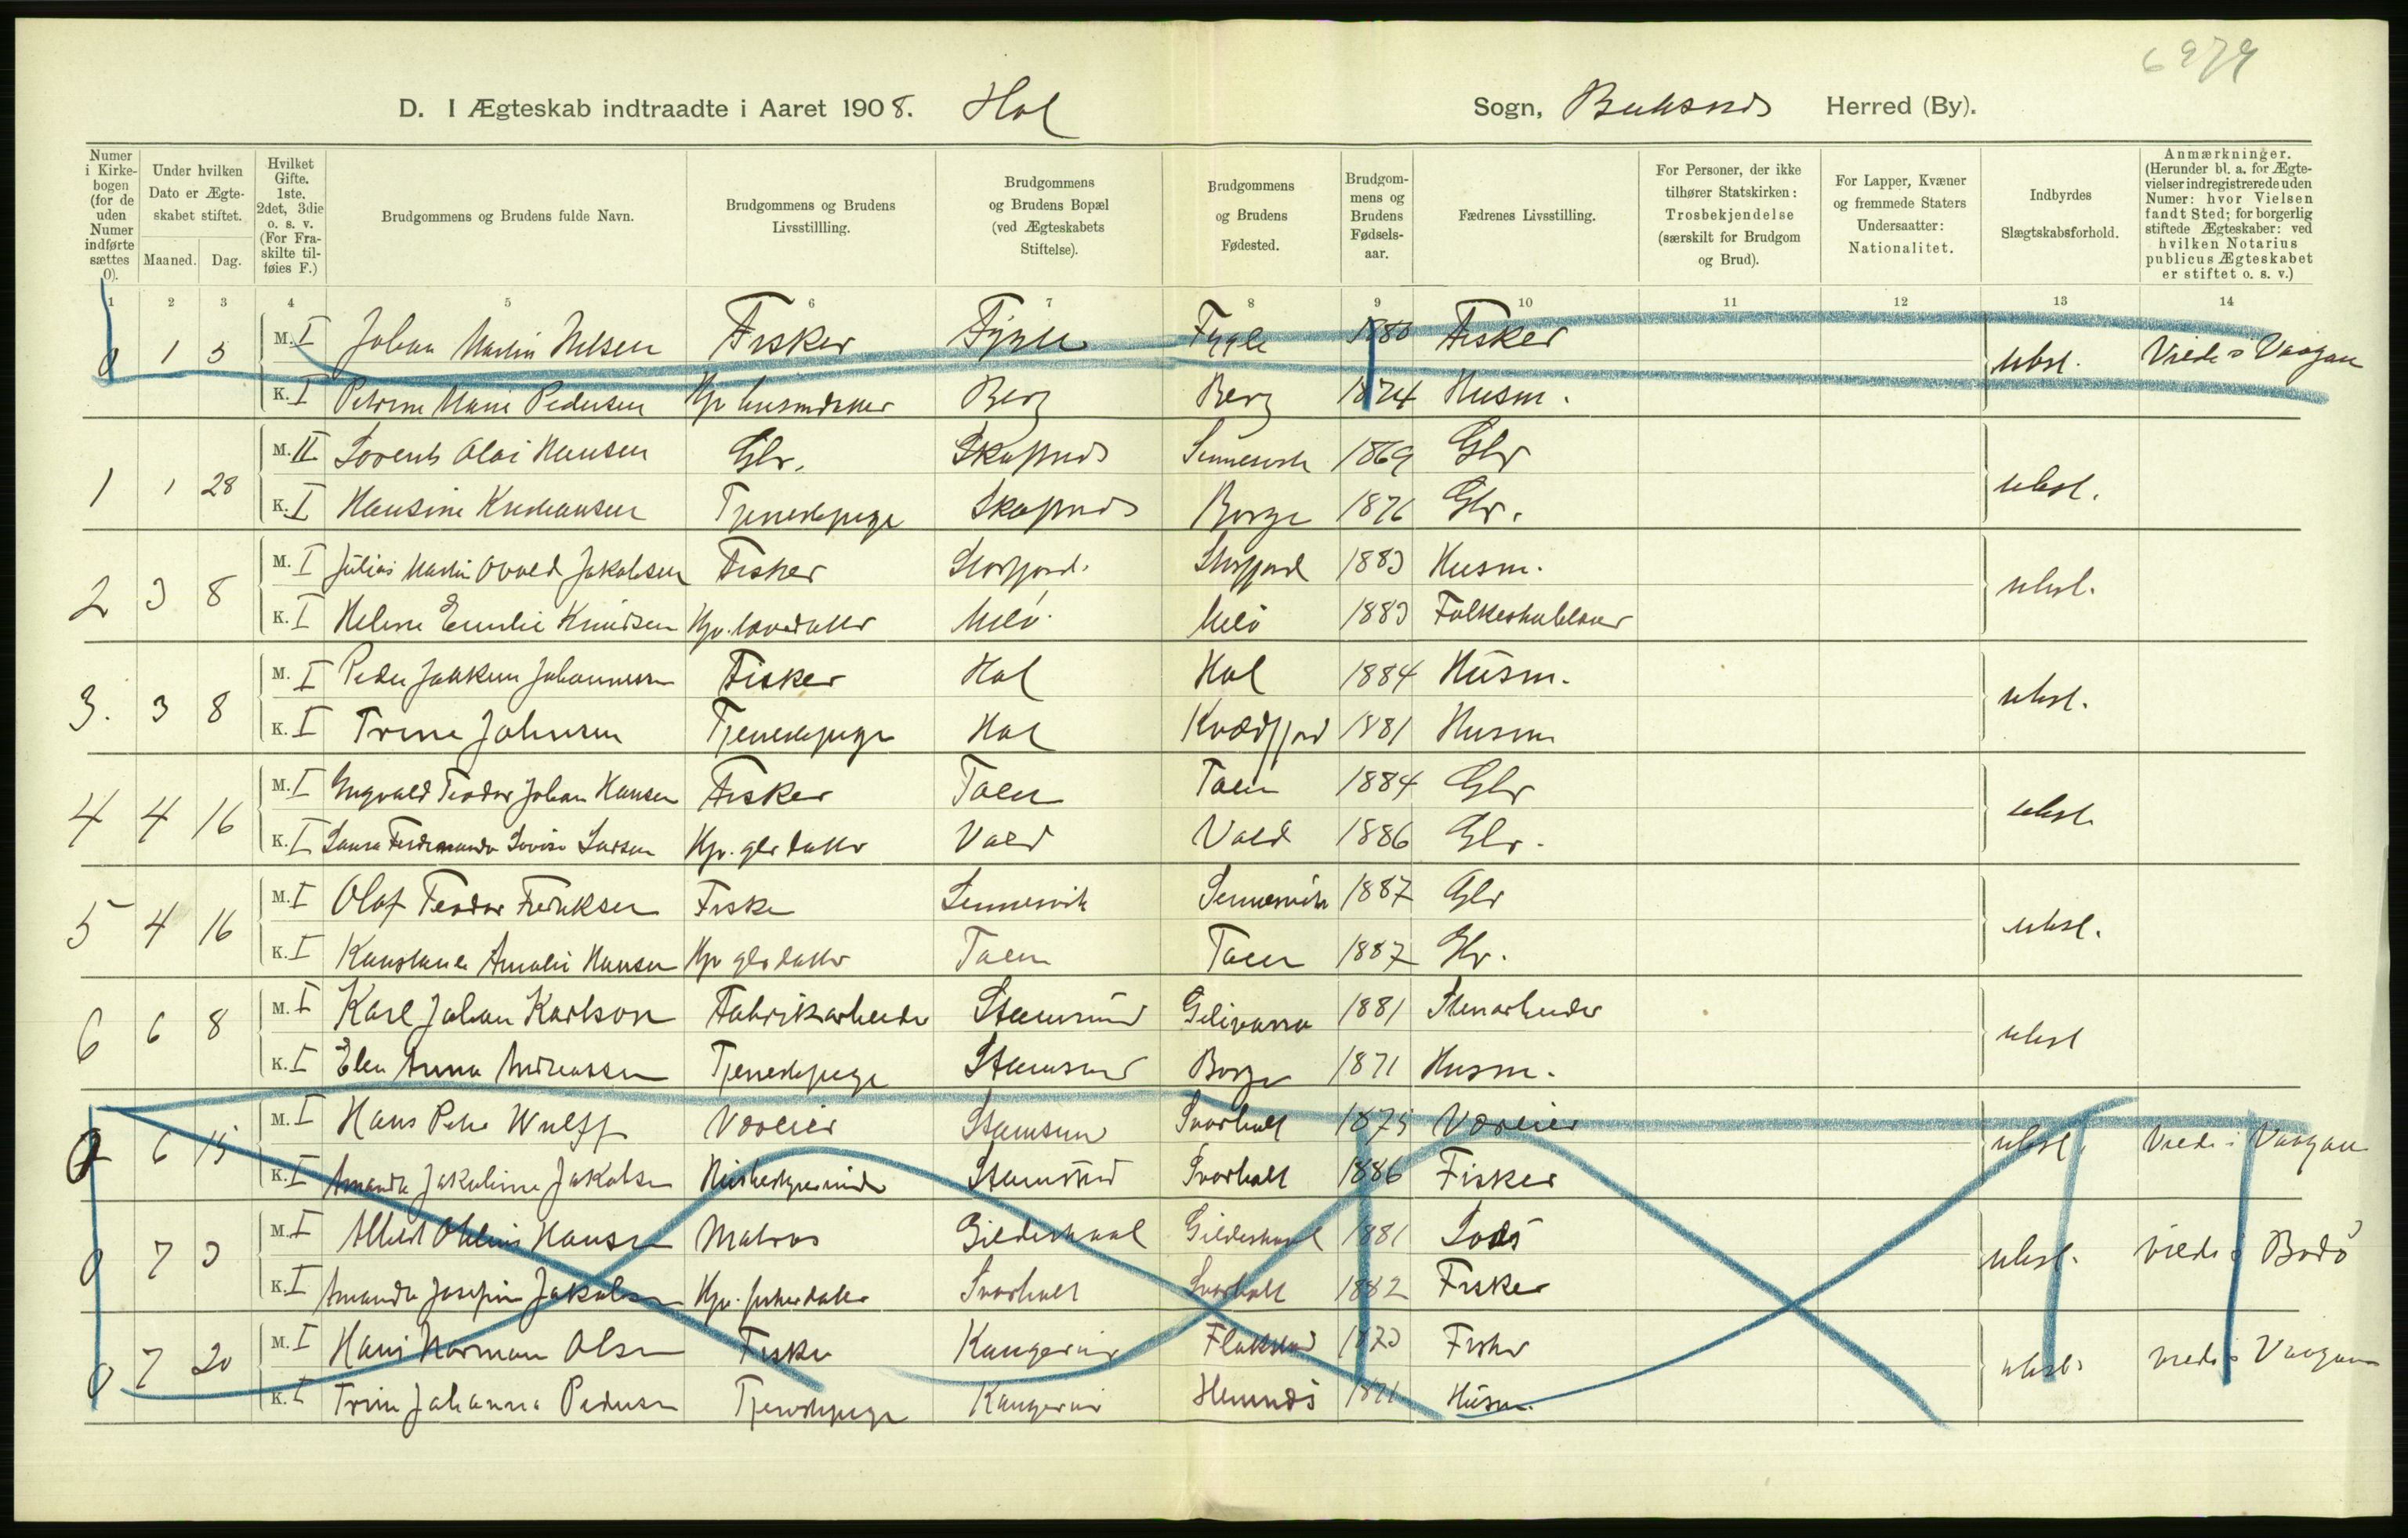 6979
D. I Ægteskab indtraadte i Aaret 1908. Hol Sogn, Buksnes Herred (By).
Numer i Kirkebogen (for de uden Numer indførte sættes 0).
Under hvilken Dato er Ægteskabet stiftet.
Maaned. Dag.
Hvilket Gifte. 1ste. 2det, 3die o. s. v. (For Fraskilte tilføies F.)
Brudgommens og Brudens fulde Navn.
Brudgommens og Brudens Livsstillling.
Brudgommens og Brudens Bopæl (ved Ægteskabets Stiftelse).
Brudgommens og Brudens Fødested.
Brudgommens og Brudens Fødselsaar.
Fædrenes Livsstilling.
For Personer, der ikke tilhører Statskirken: Trosbekjendelse (særskilt for Brudgom og Brud).
For Lapper, Kvæner og fremmede Staters Undersaatter: Nationalitet.
Indbyrdes Slægtskabsforhold.
Anmærkninger. (Herunder bl. a. for Ægtevielser indregistrerede uden Numer: hvor Vielsen fandt Sted; for borgerlig stiftede Ægteskaber: ved hvilken Notarius publicus Ægteskabet er stiftet o. s. v.)
1 2 3 4 5 6 7 8 9 10 11 12 13 14
0 1 3 M. I Johan Martin Nilsen Fisker Fygle Fygle 1880 Fisker ubsl. Viede i Vaagan
K. I Petrine Marie Pedersen Hjv. husmdatter Berg Berg 1874 Husm.
1 1 28 M. II Lorents Olai Hansen Gbr. Skafsnes Sennesvik 1869 Gbr ubsl.
K. I Hansine Tjenestepige Skafsnes Borge 1876 Gbr.
2 3 8 M. I Julius Martin Jakobsen Fisker Storfjord. Storfjord 1883 Husm. ubsl.
K. I Helene Emilie Knudsen Hjv. 1883
3. 3 8 M. I Peder Joakim Johannessen Fisker Hol Hol 1884 Husm. ubsl.
K. I Trine Johnsen Tjenestepige Hol Kvædfjord 1881 Husm
4 4 16 M. I Ingvald Teodor Johan Hansen Fisker Taen Taen 1884 Gbr ubsl.
K. I Laura Ferdinanda Lovise Larsen Hjv. gbrdatter Vold Vold 1886 Gbr.
5 4 16 M. I Olaf Teodor Fredriksen Fisker Sennesvik Sennesvik 1887 Gbr ubsl.
K. I Konstance Amalie Hansen Hjv gbrdatter Taen Taen 1887 Gbr.
6 6 8 M. I Karl Johan Karlson Fabrikarbeider Stamsund Gelivara 1881 Stenarbeider ubsl
K. I Elen Anna Andreassen Tjenestepige Stamsund Borge 1871 Husm.
0 6 15 M. I Hans Peter Wulff Væreier Stamsund Svorholt 1875 Væreier ubsl. Viede i Vaagan
K. I Amanda Jakobine Jakobsen Husbestyrerinde Stamsund Svorholt 1886 Fisker
0 7 3 M. I Albert Hansen Matros Gildeskaal Gildeskaal 1881 Lods ubsl. viede i Bodø
K. I Amanda Josefine Jakobsen Hjv. fiskerdatter Svorholt Svorholt 1882 Fisker
0 7 20 M. I Hans Norman Olsen Fisker Kangerur Flakstad 1873 Fisker ubsl. viede i Vaagan
K. I Trine Johanna Pedersen Tjenestepige Kangerur Hemnes 1871 Husm.